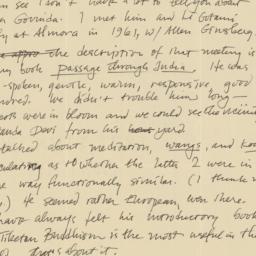 n see I don't have a lot to tell you about
a Govinda. I met him and Li Gotami
ly at Almora in 1961, w/ Allen Ginsberg.
the description of that meeting is
my book Passage Through India. He was
-spoken, gentle, warm, responsive, good
ored. We didn't trouble them long —
were in bloom and we could see the
anda Devi from his yard
talked about meditation, wangs, and
culating as to whether the latter 2 were in
e way functionally similar. (I think
.) He seemed rather European, won
have always felt his introductory book
Tibetan Buddhism is the most useful in the
about it.